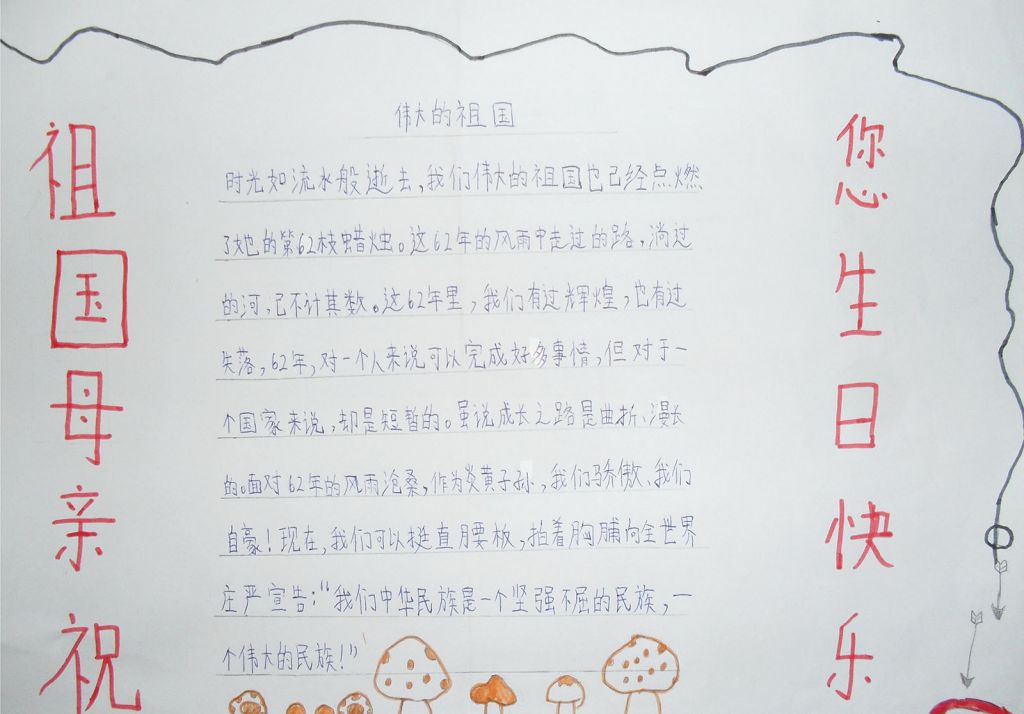 祖国母亲祝
您生日快乐
伟大的祖国
时光如流水般逝去,我们伟大的祖国也已经点燃
了她的第62枝蜡烛。这62年的风雨中走过的路,淌过
的河,已不计其数。这62年里,我们有过辉煌,也有过
失落,62年,对一个人来说可以完成好多事情,但对于一
个国家来说,却是短暂的。虽说成长之路是曲折、漫长
的。面对62年的风雨沧桑,作为炎黄子孙,我们骄傲、我们
自豪!现在,我们可以挺直腰板,拍着胸脯向全世界
庄严宣告:“我们中华民族是一个坚强不屈的民族,一
个伟大的民族!”